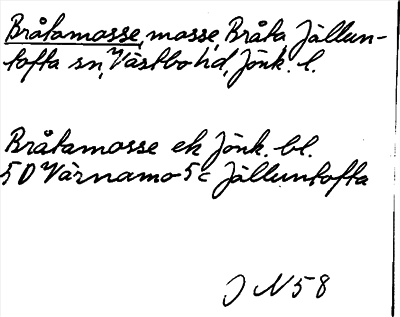 Bråtamosse, mosse, Bråta, Jällun-
tofta sn, Västbo hd, Jönk. l.
Bråtamosse ek Jönk. bl.
5D Värnamo 5c Jälluntofta
J N58